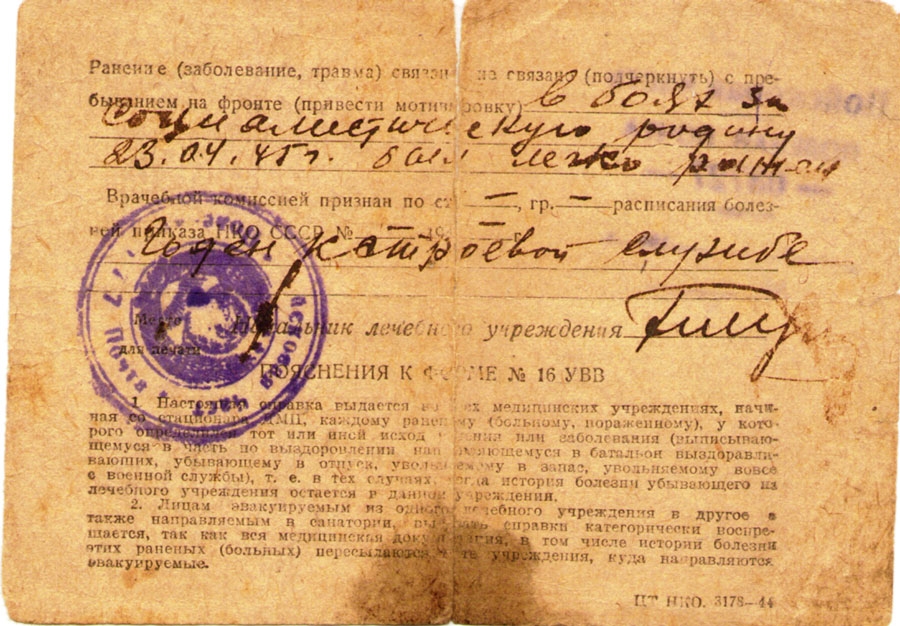 Ранение (заболевание, травма) связано не связано (подчеркнуть) с пре-
быванием на фронте (привести мотивировку) в боях за
социалистическую родину
23.04.45г. был легко ранен
Врачебной комиссией признан по ст. — , гр. — расписания болез-
ней приказа НКО СССР № — 19 — г.
Годен к строевой службе
Место для печати
Начальник лечебного учреждения
ПОЯСНЕНИЯ К ФОРМЕ № 16 УВВ
1. Настоящая справка выдается во всех медицинских учреждениях, начи-
ная со стационара ДМП, каждому раненому (больному, пораженному), у кото-
рого определился тот или иной исход ранения или заболевания (выписываю-
щемуся в часть по выздоровлении направляющемуся в батальон выздоравли-
вающих, убывающему в отпуск, увольняемому в запас, увольняемому вовсе
с военной службы), т. е. в тех случаях, когда история болезни убывающего из
лечебного учреждения остается в данном учреждении.
2. Лицам эвакуируемым из одного лечебного учреждения в другое а
также направляемым в санатории, выдавать справки категорически воспре-
щается, так как вся медицинская документация, в том числе истории болезни
этих раненых (больных) пересылаются в те учреждения, куда направляются
эвакуируемые.
ЦТ НКО. 3178—44